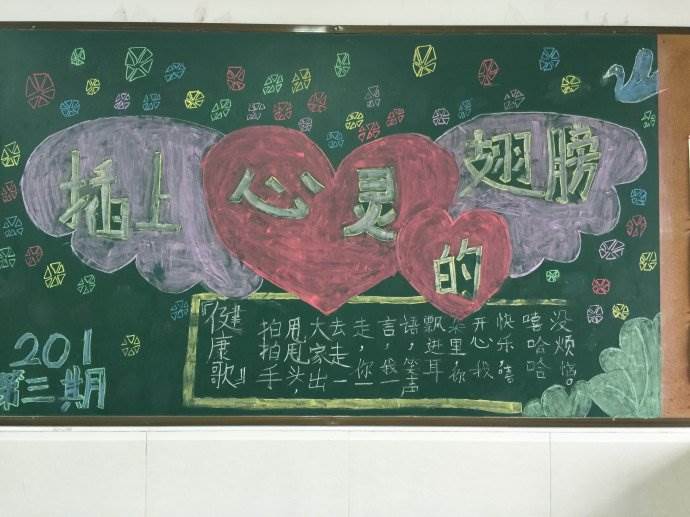 插上心灵的翅膀
201
第三期
『健康歌』
拍拍手
甩甩头，
大家出
去走一
走，你一
言，我一
语，笑声
飘进耳
朵里你
开心我
快乐，嘻
嘻哈哈
没烦恼。